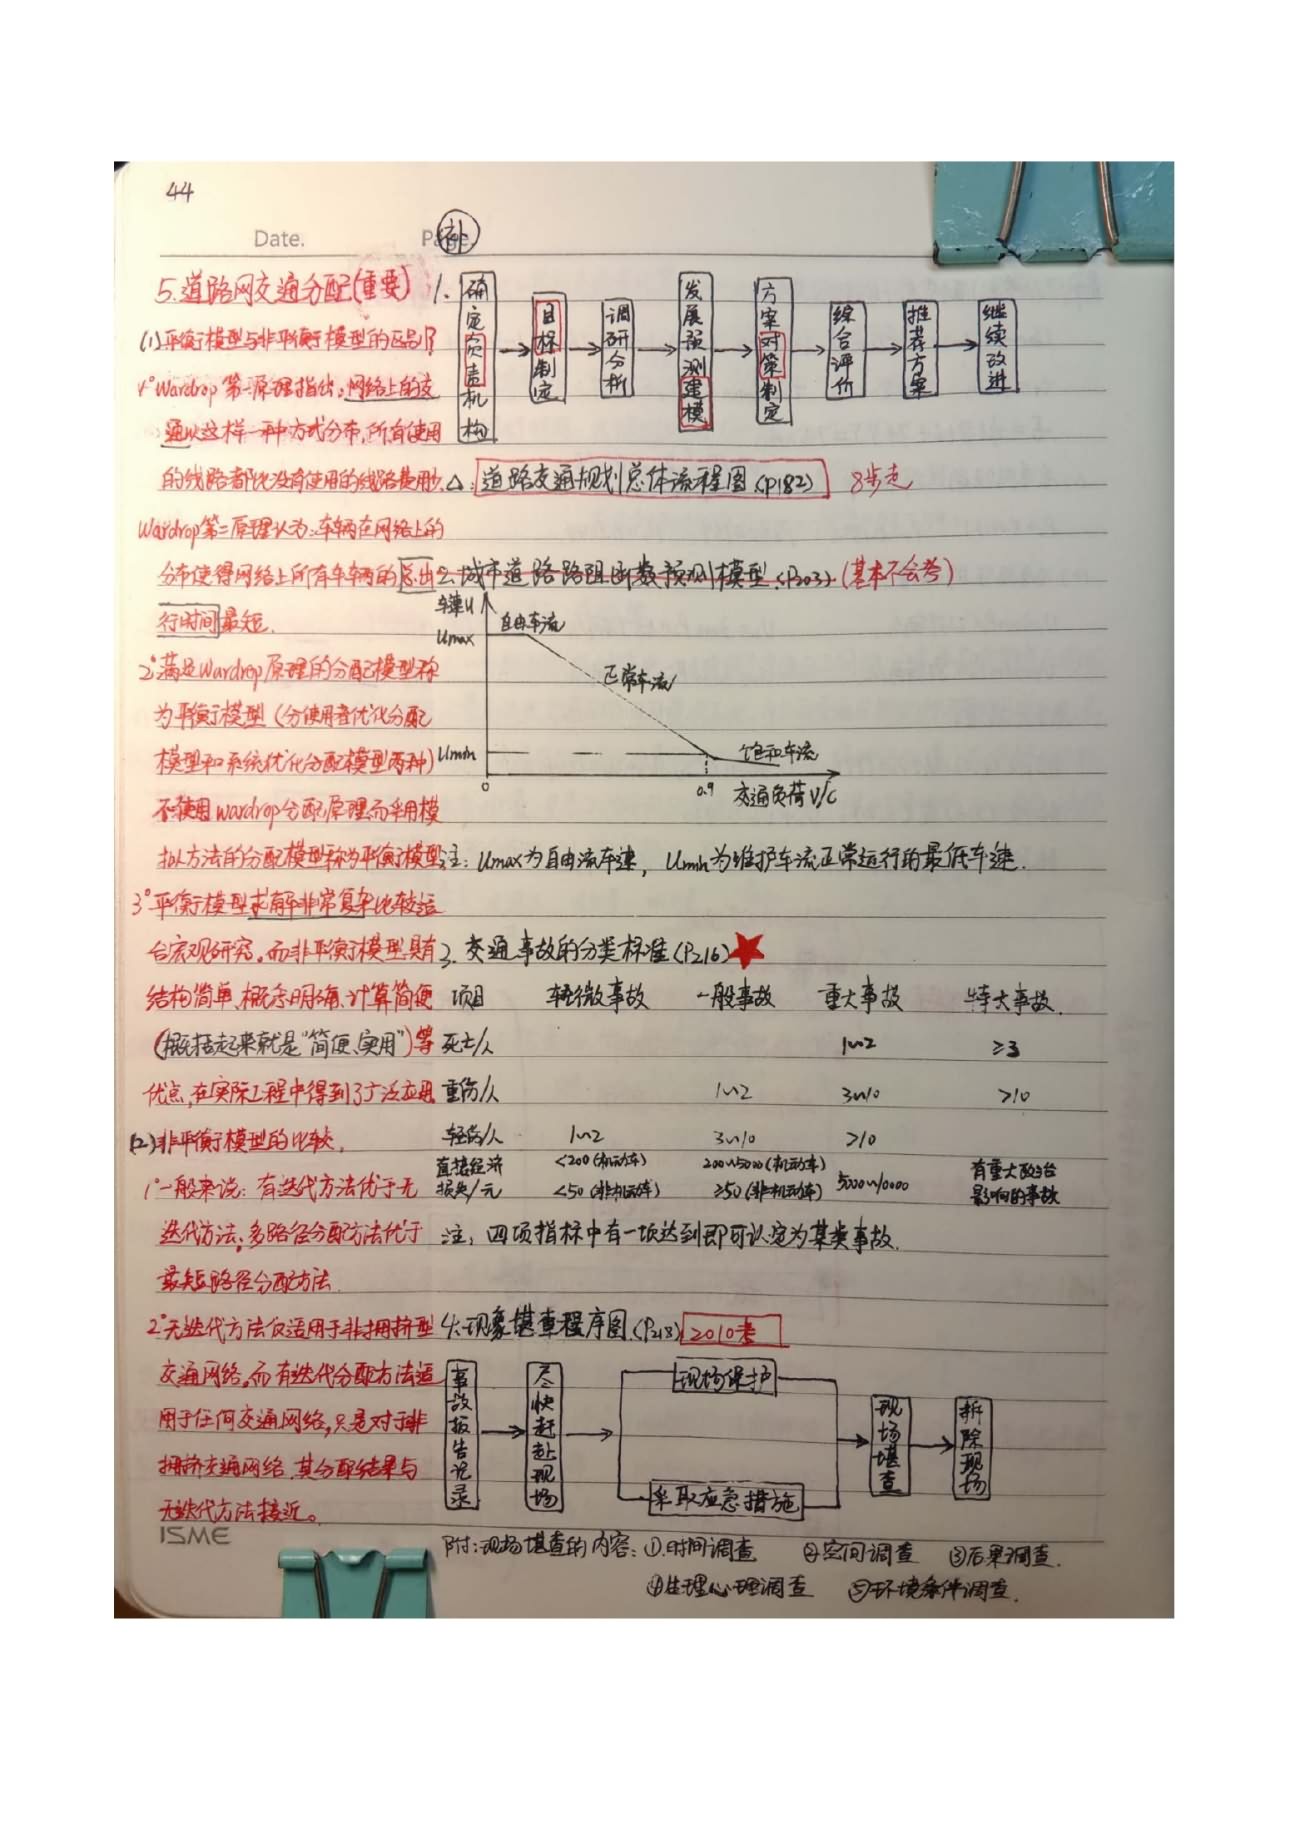 44
Date.
Page
补
5.道路网交通分配(重要)
(1)平衡模型与非平衡模型的区别?
1°Wardrop第一原理指出:网络上的交
通以这样一种方式分布,所有使用
的线路都比没有使用的线路费用少.
Wardrop第二原理认为:车辆在网络上的
分布使得网络上所有车辆的总出
行时间最短.
2°满足Wardrop原理的分配模型称
为平衡模型(分使用者优化分配
模型和系统优化分配模型两种)
不使用wardrop分配原理而采用模
拟方法的分配模型称为平衡模型.
3°平衡模型求解非常复杂比较适
合宏观研究。而非平衡模型具有
结构简单、概念明确、计算简便
(概括起来就是"简便、实用")等
优点,在实际工程中得到了广泛应用
(2)非平衡模型的比较.
1°一般来说:有迭代方法优于无
迭代方法;多路径分配方法优于
最短路径分配方法.
2°无迭代方法仅适用于非拥挤型
交通网络。而有迭代分配方法适
用于任何交通网络,只是对于非
拥挤交通网络,其分配结果与
无迭代方法接近。
ISME
1.
确定负责机构
目标制定
调研分析
发展预测建模
方案对策制定
综合评价
推荐方案
继续改进
△:道路交通规划总体流程图(P182) 8步走
2.城市道路路阻函数预测模型.(P203).(基本不会考)
车速U
Umax
自由车流
正常车流
Umin
饱和车流
0
0.9
交通负荷V/C
注:Umax为自由流车速,Umin为维护车流正常运行的最低车速.
3.交通事故的分类标准(P216)
项目 轻微事故 一般事故 重大事故 特大事故.
死亡/人 1~2 ≥3
重伤/人 1~2 3~10 >10
轻伤/人 1~2 3~10 >10
直接经济 <200(机动车) 200~5000(机动车) 有重大政治
损失/元 <50(非机动车) ≥50(非机动车) 5000~10000 影响的事故
注:四项指标中有一项达到即可认定为某类事故.
4.现象堪查程序图.(P218) 2010考
事故报告记录
尽快赶赴现场
现场保护
采取应急措施
现场堪查
拆除现场
附:现场堪查的内容:①.时间调查 ②空间调查 ③后果调查.
④生理心理调查 ⑤环境条件调查.